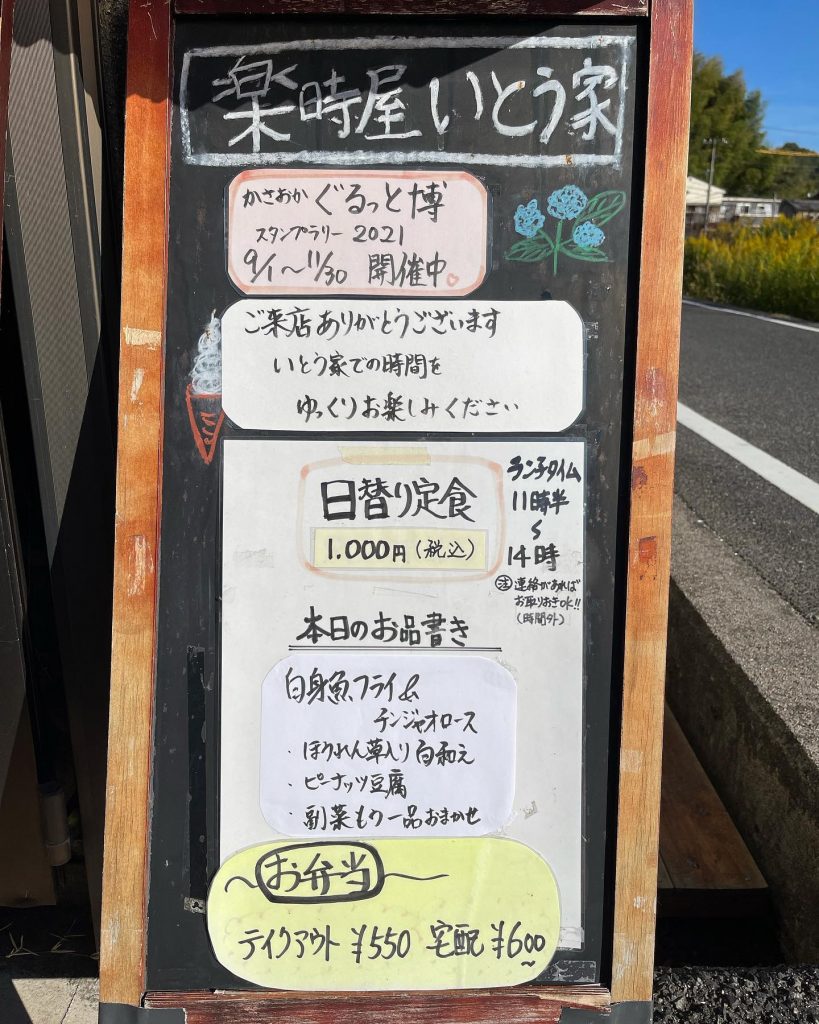 楽時屋 いとう家
かさおか ぐるっと博
スタンプラリー 2021
9/1〜11/30 開催中
ご来店ありがとうございます
いとう家での時間を
ゆっくりお楽しみください
日替り定食
1.000円(税込)
ランチタイム
11時半
〜
14時
注 連絡があれば
お取りおきOK!!
(時間外)
本日のお品書き
白身魚フライ&
チンジャオロース
・ほうれん草入り白和え
・ピーナッツ豆腐
・副菜もう一品おまかせ
〜お弁当〜
テイクアウト ¥550 宅配 ¥600〜